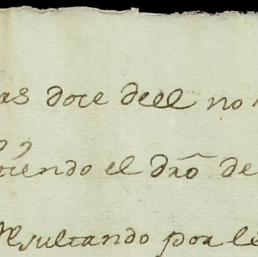 as doce deel no
tiendo el dr̃o de
Resultando por le